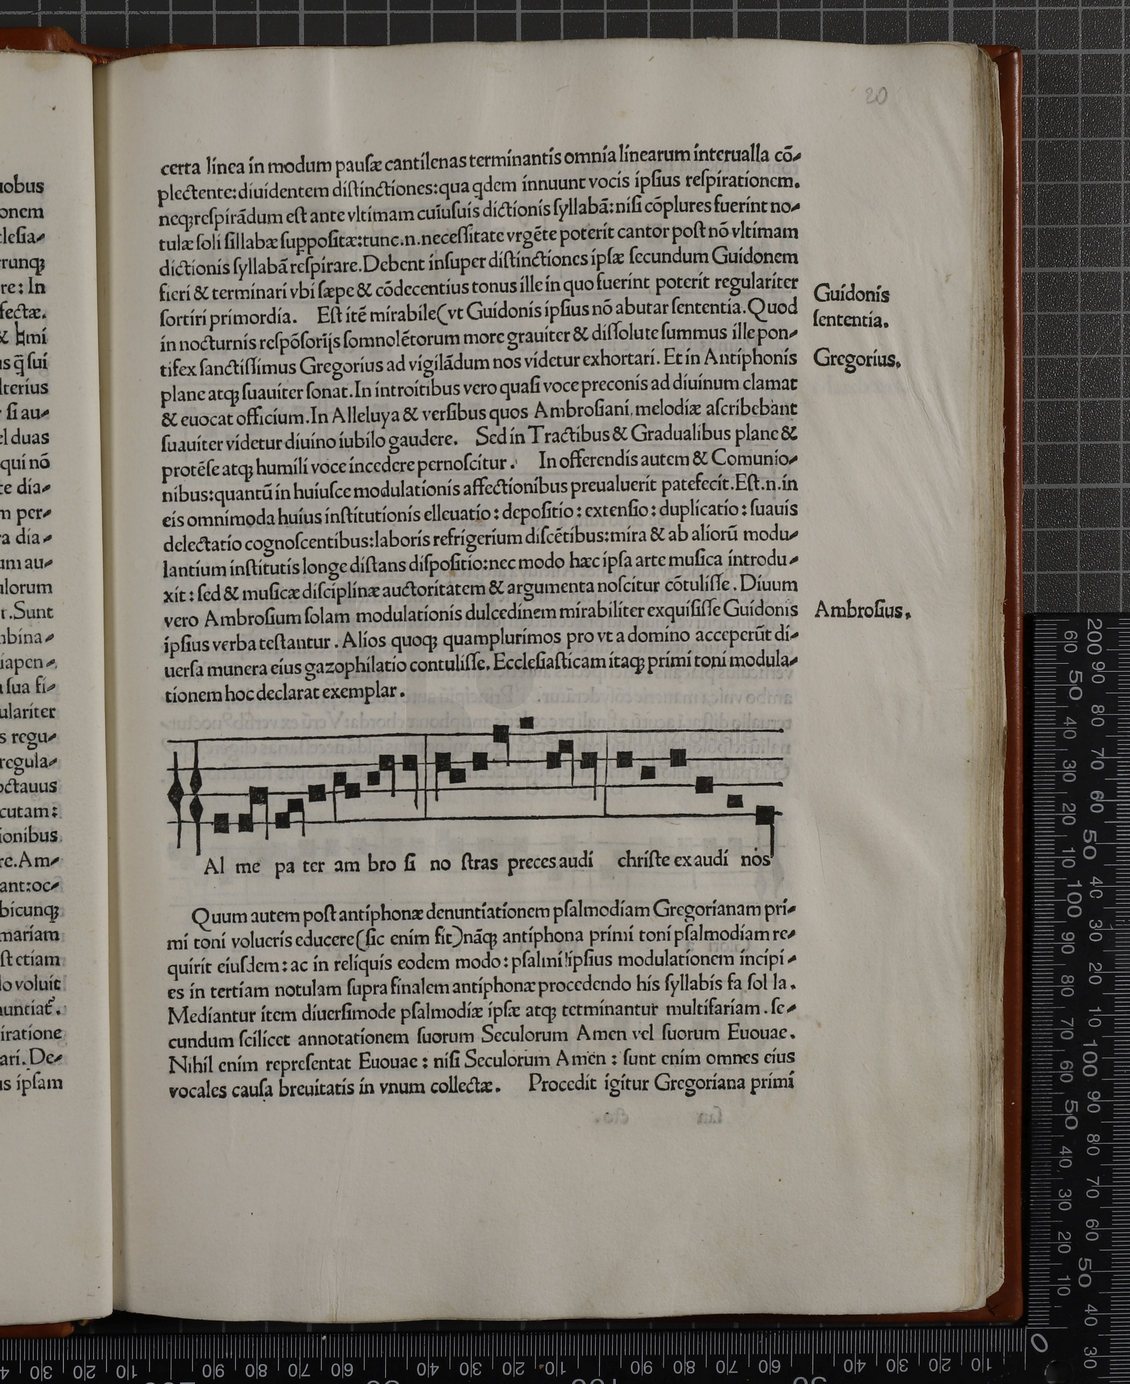 20
certa linea in modum pausæ cantilenas terminantis omnia linearum interualla cō-
plectente: diuidentem distinctiones: qua qdem innuunt vocis ipsius respirationem.
neqꝫ respirādum est ante vltimam cuiusuis dictionis syllabā: nisi cōplures fuerint no-
tulæ soli sillabæ suppositæ: tunc .n. necessitate vrgēte poterit cantor post nō vltimam
dictionis syllabā respirare. Debent insuper distinctiones ipsæ secundum Guidonem
fieri & terminari vbi sæpe & cōdecentius tonus ille in quo fuerint poterit regulariter
sortiri primordia. Est itē mirabile (vt Guidonis ipsius nō abutar sententia. Quod
in nocturnis respōsorijs somnolētorum more grauiter & dissolute summus ille pon-
tifex sanctissimus Gregorius ad vigilādum nos videtur exhortari. Et in Antiphonis
plane atqꝫ suauiter sonat. In introitibus vero quasi voce preconis ad diuinum clamat
& euocat officium. In Alleluya & versibus quos Ambrosiani, melodiæ ascribebant
suauiter videtur diuino iubilo gaudere. Sed in Tractibus & Gradualibus plane &
protēse atqꝫ humili voce incedere pernoscitur. In offerendis autem & Comunio-
nibus: quantū in huiusce modulationis affectionibus preualuerit patefecit. Est .n. in
eis omnimoda huius institutionis elleuatio: depositio: extensio: duplicatio: suauis
delectatio cognoscentibus: laboris refrigerium discētibus: mira & ab aliorū modu-
lantium institutis longe distans dispositio: nec modo hæc ipsa arte musica introdu-
xit: sed & musicæ disciplinæ auctoritatem & argumenta noscitur cōtulisse. Diuum
vero Ambrosium solam modulationis dulcedinem mirabiliter exquisisse Guidonis
ipsius verba testantur. Alios quoqꝫ quamplurimos pro vt a domino acceperūt di-
uersa munera eius gazophilatio contulisse. Ecclesiasticam itaqꝫ primi toni modula-
tionem hoc declarat exemplar.
Guidonis
sententia.
Gregorius.
Ambrosius.
Al me pa ter am bro si no stras preces audi christe exaudi nos
Quum autem post antiphonæ denuntiationem psalmodiam Gregorianam pri-
mi toni volueris educere (sic enim fit) nāqꝫ antiphona primi toni psalmodiam re-
quirit eiusdem: ac in reliquis eodem modo: psalmi ipsius modulationem incipi-
es in tertiam notulam supra finalem antiphonæ procedendo his syllabis fa sol la.
Mediantur item diuersimode psalmodiæ ipsæ atqꝫ terminantur multifariam. se-
cundum scilicet annotationem suorum Seculorum Amen vel suorum Euouae.
Nihil enim represent­at Euouae: nisi Seculorum Amen: sunt enim omnes eius
vocales causa breuitatis in vnum collectæ. Procedit igitur Gregoriana primi